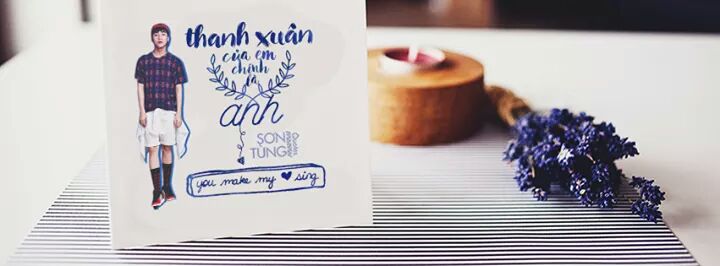 thanh xuân
của em
chính
là
anh
SƠN
TÙNG
you make my ❤ sing